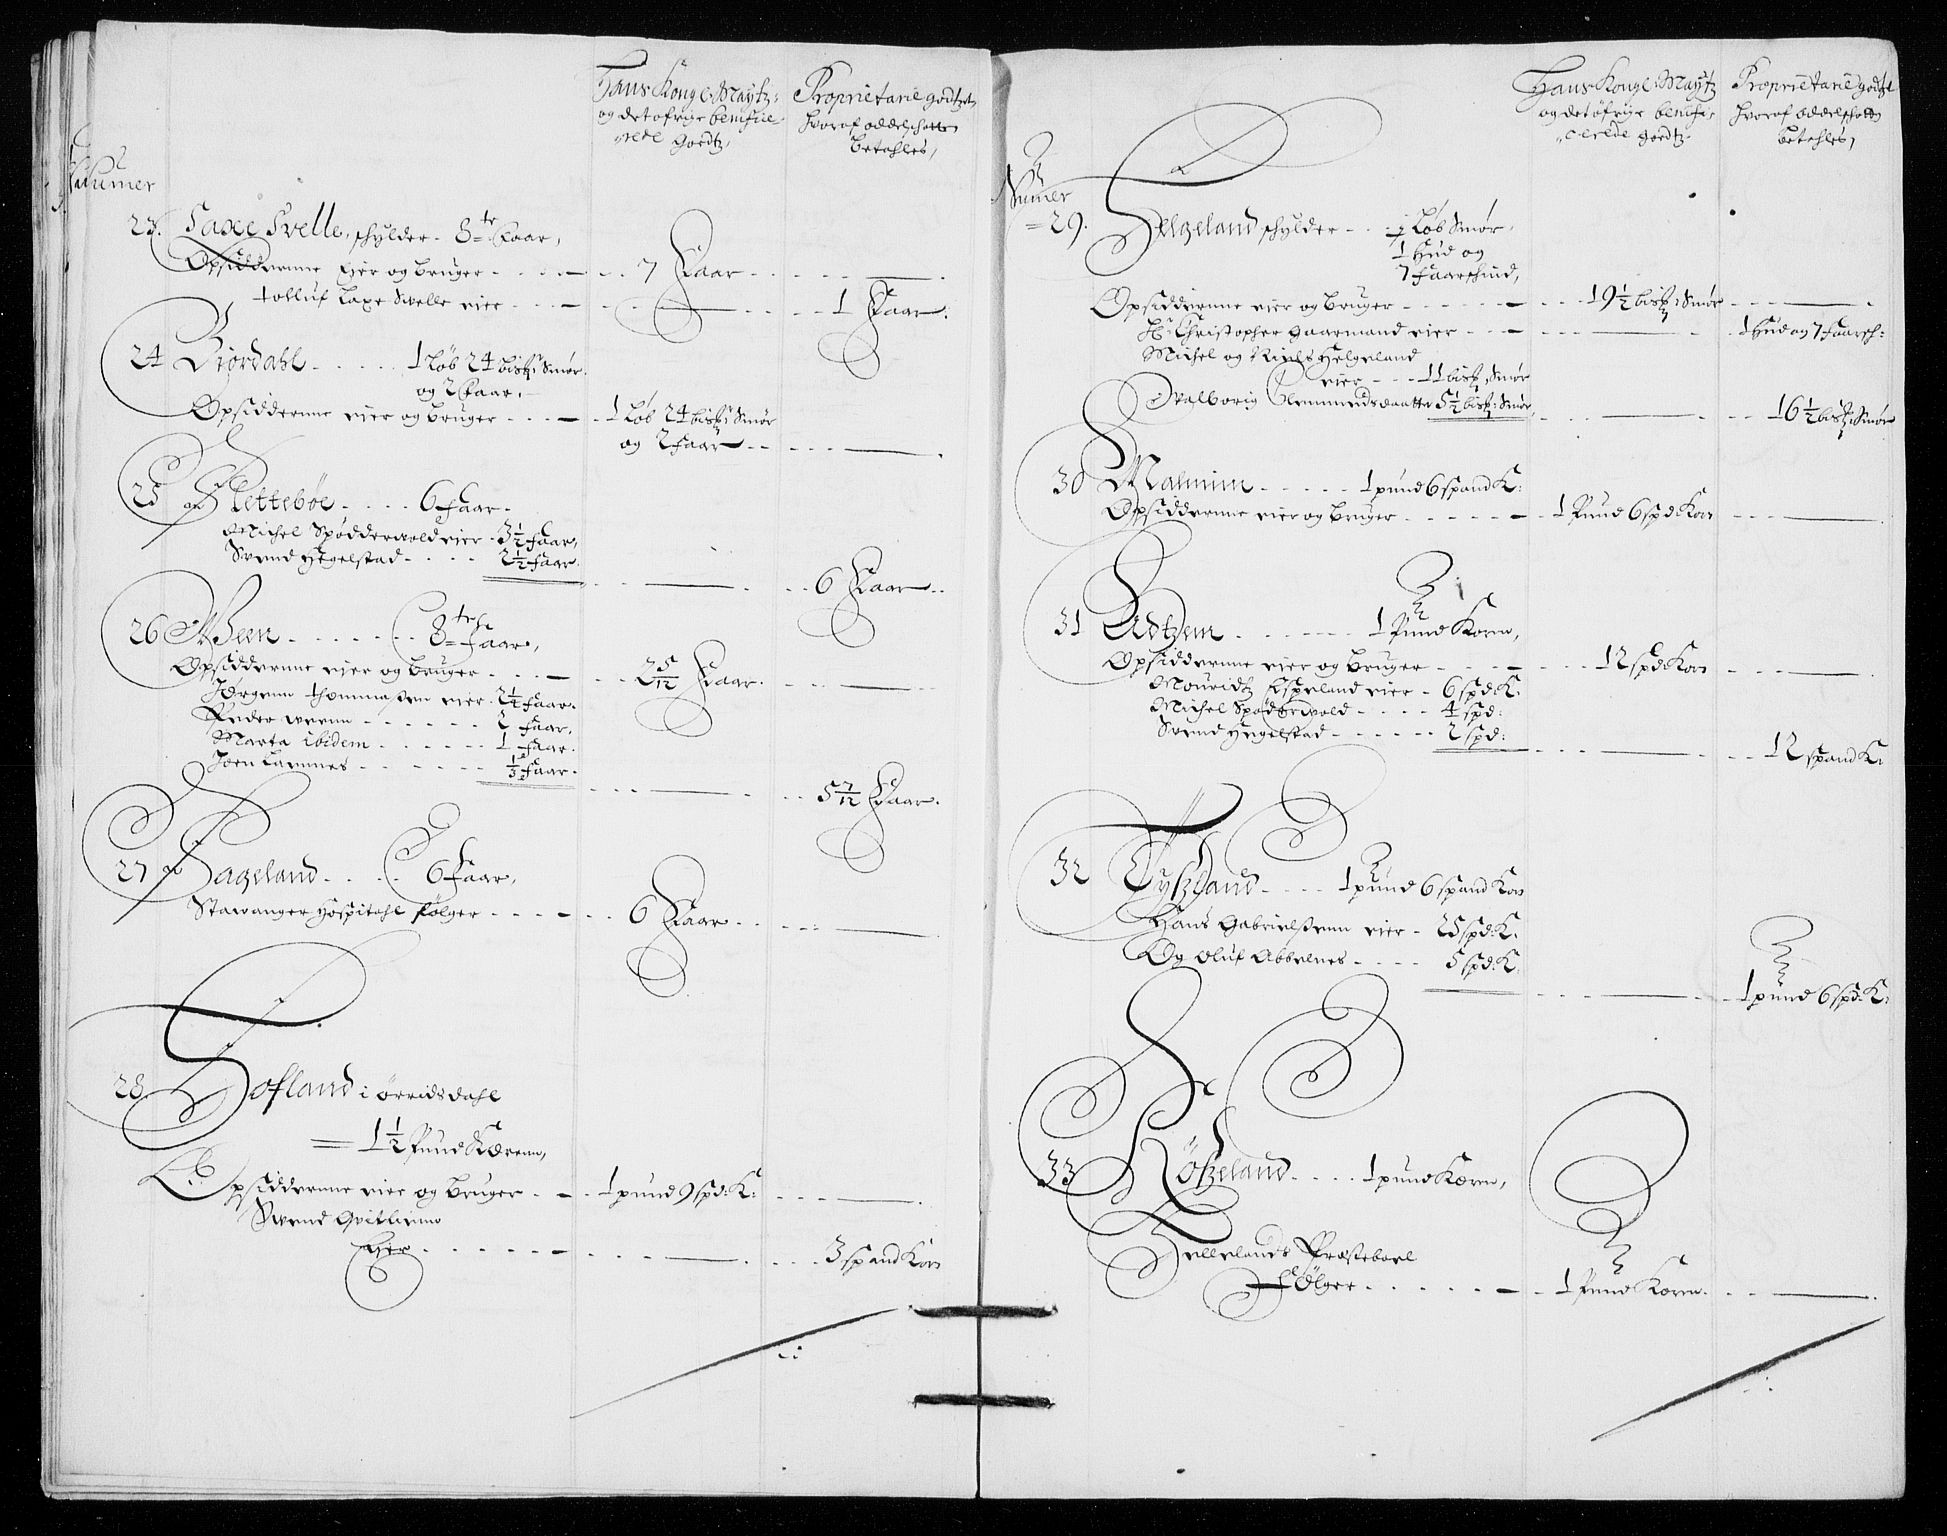 Hans Kongl: Maÿtz:
og det öfrige benificie-
rede Goedtz,
Proprietarie godtzet
hvoraf oddelschatten
betahles,
Numer
23. Laxe Svelle, schylder - 8te Faar,
Opsidderenne Eier og bruger - - - - - 7 Faar - - - -
tolluf Laxe Svelle eier - - - - - 1 Faar.
24 Biordahl - - - - - 1 Løb 24 bisk: Smør.
og 2 Faar.
Opsidderenne eier og bruger - - - - 1 Løb 24 bisk: Smør
og 2 Faar - - - -
25 Slettebøe - - - - 6 Faar.
Michel Spødderwold eier - 3 1/2 Faar,
Svend Hegelstad - - - - 2 1/2 Faar.
- - - - 6 Faar - -
26 Meen - - - - - - 8te Faar,
Opsidderenne eier og bruger - - - - 2 5/12 Faar. - - - -
Jørgenn thommaßen eier - 2 1/4 Faar.
Peder - - - - - - 2 Faar.
Marta ibidem - - - - - - 1 Faar.
Joen - - - - - - 1/3 Faar.
- - - - 5 7/12 Faar.
27 Hageland - - - - 6 Faar,
Stawanger Hospitahl følger - - - - - 6 Faar - - - -
28 Hofland i Ørridsdahl
= 1 1/2 Pund Korenn,
Opsidderenne eier og bruger - - - 1 pund 9 spd: K: - - -
Swend
Eier - - - - - - - 3 spand Korn
Hans Kongl: Maÿtz
og det öfrige benifi-
cerede goedtz.
Proprietarie godtzet
hvoraf oddelschatten
betahles,
Numer
29. Helgeland schylder - - 1 Løb Smør,
1 Hud og
7 Faarschind,
Opsidderenne eier og bruger - - - - - - 19 1/2 bisk: Smør - - -
Hr: Christopher Gaarmand eier - - - - - 1 Hud og 7 Faarsch:
Michel og Niels Helgeland
eier - - - 11 bisk: Smør
Walborig Clemmendsdaatter 5 1/2 bisk: Smør,
- - - - 16 1/2 bisk: Smør
30 Malmim - - - - - 1 pund 6 spand K:
Opsidderenne eier og bruger - - - - - - 1 Pund 6 spd: Korn - - -
31 Adtzem - - - - - - 1 Pund Koren,
Opsidderenne eier og bruger - - - - - - 12 spd: Korn - - -
Mouridtz Espeland eier - 6 spd: K:
Michel Spøderwold - - - - 4 spd:
Svend Hegelstad - - - - - - 2 spd:
- - - - 12 spand K:
32 Tyßland - - - - 1 pund 6 spand Korn
Hans Gabrielßenn eier - 25 spd: K:
Og Oluf Abbelnes - - - - 5 spd: K.
- - - - 1 pund 6 spd: K:
33 Røßeland - - - - 1 pund Koren,
Hellelands Præsteboel
følger - - - - - - - 1 Pund Koren. - - -